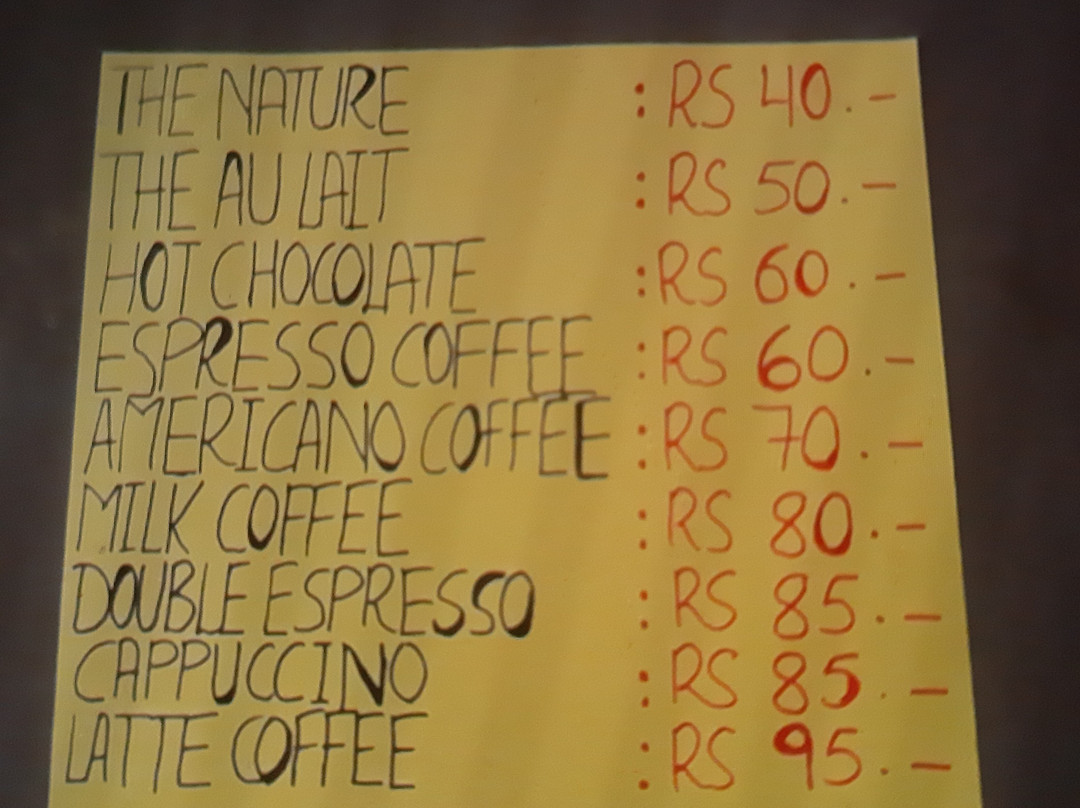 THE NATURE : RS 40.-
THE AU LAIT : RS 50.-
HOT CHOCOLATE : RS 60.-
ESPRESSO COFFEE : RS 60.-
AMERICANO COFFEE : RS 70.-
MILK COFFEE : RS 80.-
DOUBLE ESPRESSO : RS 85.-
CAPPUCCINO : RS 85.-
LATTE COFFEE : RS 95.-